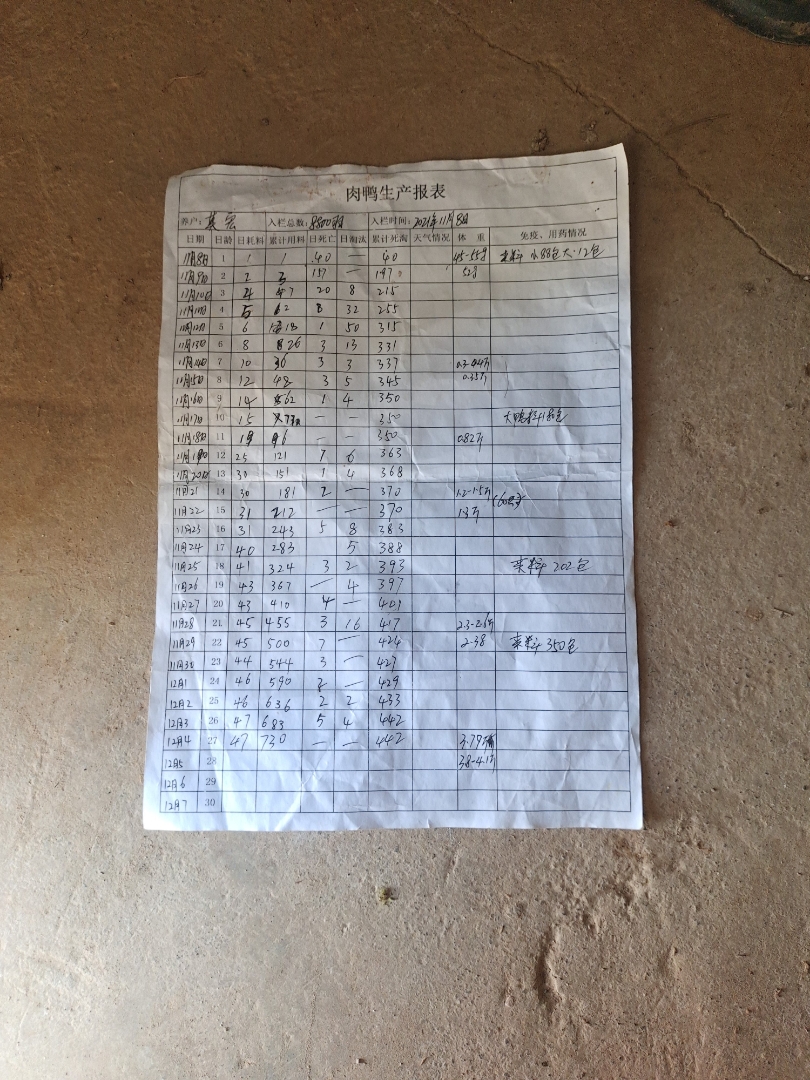 肉鸭生产报表
养户: 入栏总数:8800 入栏时间:2021年11月8日
日期 日龄 日耗料 累计用料 日死亡 日淘汰 累计死淘 天气情况 体 重 免疫、用药情况
11月8日 1 1 1 40 — 40 45-55g 来料 小88包 大12包
11月9日 2 2 3 157 — 197 52g
11月10日 3 4 7 20 8 215
11月11日 4 5 12 8 32 255
11月12日 5 6 18 1 50 315
11月13日 6 8 26 3 13 331
11月14日 7 10 36 3 3 337 0.3-0.4斤
11月15日 8 12 48 3 5 345 0.35斤
11月16日 9 14 62 1 4 350
11月17日 10 15 77 — — 350 大鸭料180包
11月18日 11 19 96 — — 350 0.82斤
11月19日 12 25 121 7 6 363
11月20日 13 30 151 1 4 368
11月21 14 30 181 2 — 370 1.2-1.5斤
11月22 15 31 212 — — 370 1.3斤
11月23 16 31 243 5 8 383
11月24 17 40 283 5 388
11月25 18 41 324 3 2 393 来料 202包
11月26 19 43 367 — 4 397
11月27 20 43 410 4 — 401
11月28 21 45 455 3 16 417 2.3-2.6斤
11月29 22 45 500 7 — 424 2.38 来料 350包
11月30 23 44 544 3 — 427
12月1 24 46 590 2 — 429
12月2 25 46 636 2 2 433
12月3 26 47 683 5 4 442
12月4 27 47 730 — — 442 3.79斤
12月5 28 3.8-4.1斤
12月6 29
12月7 30